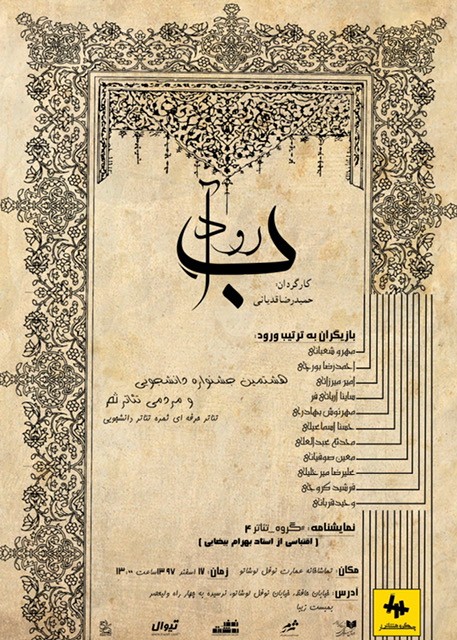 آب رود
کارگردان:
حمیدرضا قدیانی
بازیگران به ترتیب ورود:
مهرو شعبانی
احمدرضا پورجی
امیر میرزائی
ساینا آریائی فر
مهرنوش بهادرجی
حسنا اسماعیلی
محدثه عبدالعلی
معین صوفیانی
علیرضا میر خلیلی
فرشید کروجی
وحید قربانی
هشتمین جشنواره دانشجویی
و مردمی تئاتر ثمر
تئاتر حرفه ای ثمره تئاتر دانشجویی
نمایشنامه: #گروه_تئاتر ۴
( اقتباسی از استاد بهرام بیضایی )
مکان: تماشاخانه عمارت نوفل لوشاتو زمان: ۱۷ اسفند ۱۳۹۷ ساعت ۱۳:۰۰
آدرس: خیابان حافظ، خیابان نوفل لوشاتو، نرسیده به چهار راه ولیعصر
بمبست زیبا
ثمر
تیوال
گروه تئاتر